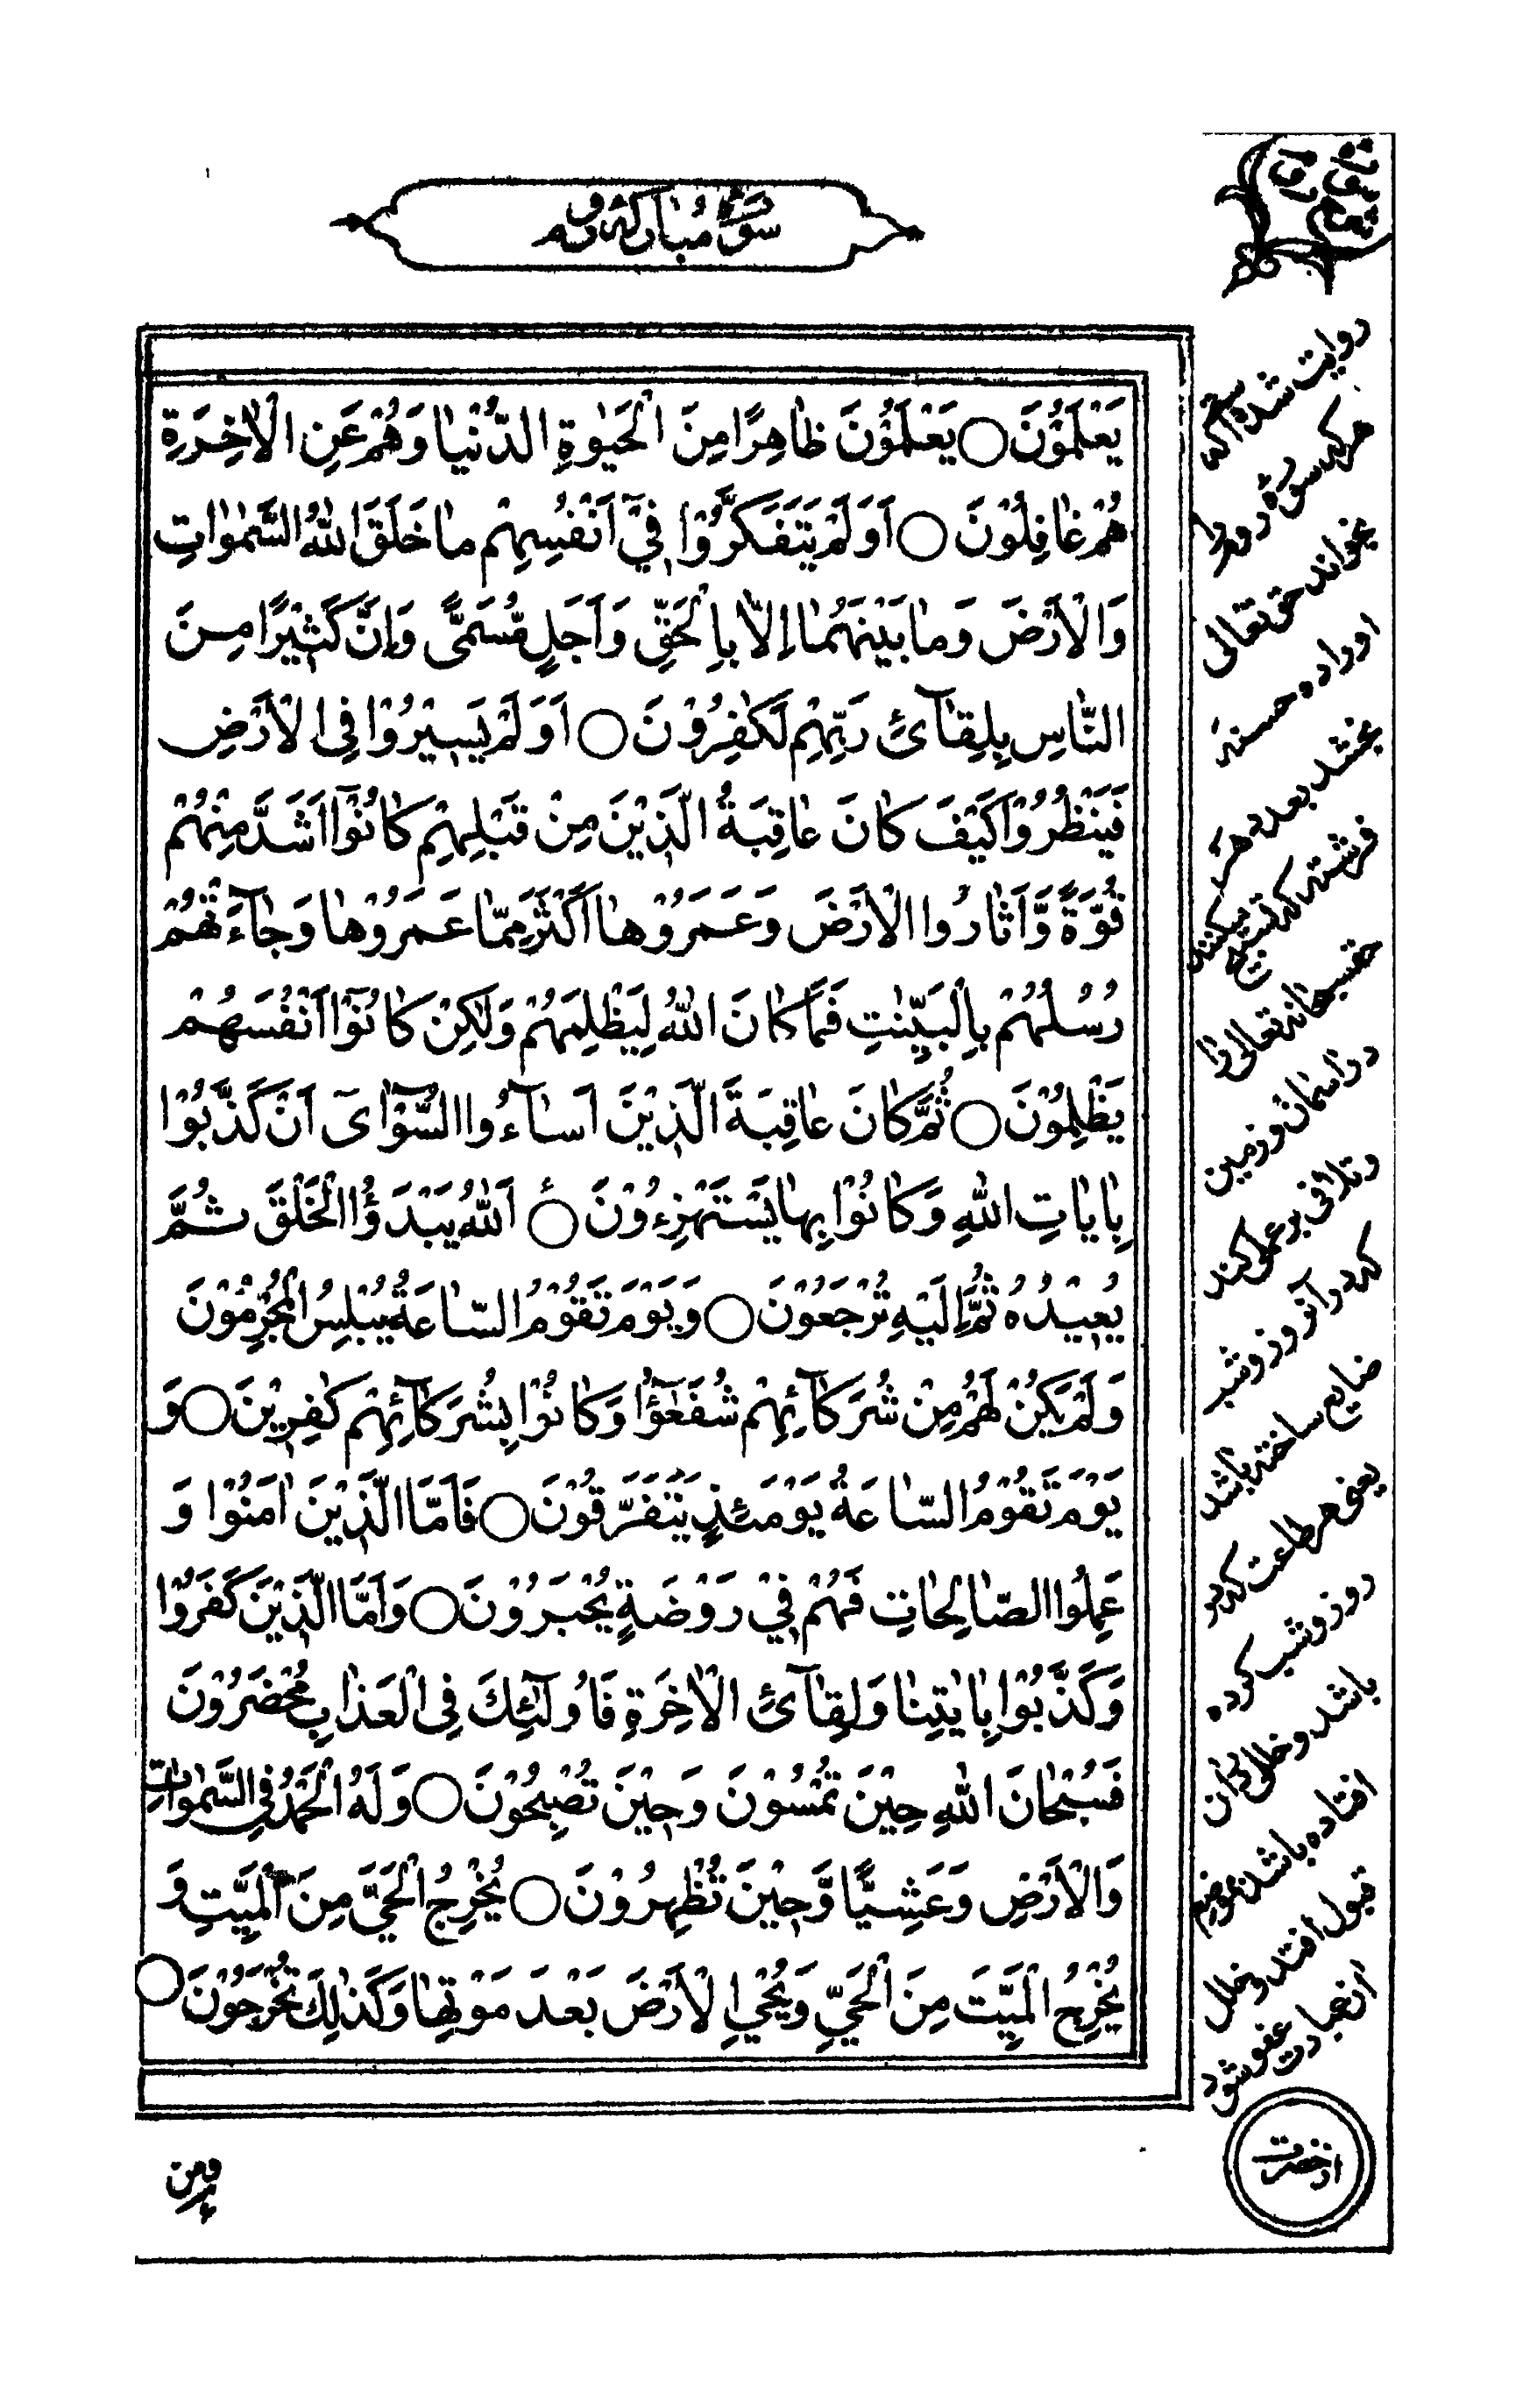 سورۀ مبارکه روم
يَعْلَمُوْنَ ○ يَعْلَمُوْنَ ظاهِرًا مِنَ الْحَيٰوةِ الدُّنْيٰا وَهُمْ عَنِ الْاٰخِرَةِ
هُمْ غٰافِلُوْنَ ○ اَوَلَمْ يَتَفَكَّرُوْا فِيْٓ اَنْفُسِهِمْ مٰا خَلَقَ اللّٰهُ السَّمٰوٰاتِ
وَالْاَرْضَ وَمٰا بَيْنَهُمٰا اِلاّٰ بِالْحَقِّ وَاَجَلٍ مُّسَمًّى وَاِنَّ كَثِيْرًا مِنَ
النّٰاسِ بِلِقٰآئِ رَبِّهِمْ لَكٰفِرُوْنَ ○ اَوَلَمْ يَسِيْرُوْا فِى الْاَرْضِ
فَيَنْظُرُوْا كَيْفَ كٰانَ عٰاقِبَةُ الَّذِيْنَ مِنْ قَبْلِهِمْ كٰانُوْٓا اَشَدَّ مِنْهُمْ
قُوَّةً وَّاَثٰارُوا الْاَرْضَ وَعَمَرُوْهٰا اَكْثَرَ مِمّٰا عَمَرُوْهٰا وَجٰآءَتْهُمْ
رُسُلُهُمْ بِالْبَيِّنٰتِ فَمٰا كٰانَ اللّٰهُ لِيَظْلِمَهُمْ وَلٰكِنْ كٰانُوْٓا اَنْفُسَهُمْ
يَظْلِمُوْنَ ○ ثُمَّ كٰانَ عٰاقِبَةَ الَّذِيْنَ اَسٰآءُوا السُّوْٓاٰىٓ اَنْ كَذَّبُوْا
بِاٰيٰاتِ اللّٰهِ وَكٰانُوْا بِهٰا يَسْتَهْزِءُوْنَ ○ اَللّٰهُ يَبْدَؤُا الْخَلْقَ ثُمَّ
يُعِيْدُهُ ثُمَّ اِلَيْهِ تُرْجَعُوْنَ ○ وَيَوْمَ تَقُوْمُ السّٰاعَةُ يُبْلِسُ الْمُجْرِمُوْنَ
وَلَمْ يَكُنْ لَهُمْ مِنْ شُرَكٰآئِهِمْ شُفَعٰٓؤُا وَكٰانُوْا بِشُرَكٰآئِهِمْ كٰفِرِيْنَ ○ وَ
يَوْمَ تَقُوْمُ السّٰاعَةُ يَوْمَئِذٍ يَتَفَرَّقُوْنَ ○ فَاَمَّا الَّذِيْنَ اٰمَنُوْا وَ
عَمِلُوا الصّٰالِحٰاتِ فَهُمْ فِيْ رَوْضَةٍ يُحْبَرُوْنَ ○ وَاَمَّا الَّذِيْنَ كَفَرُوْا
وَكَذَّبُوْا بِاٰيٰتِنٰا وَلِقٰآئِ الْاٰخِرَةِ فَاُولٰٓئِكَ فِى الْعَذٰابِ مُحْضَرُوْنَ
فَسُبْحٰانَ اللّٰهِ حِيْنَ تُمْسُوْنَ وَحِيْنَ تُصْبِحُوْنَ ○ وَلَهُ الْحَمْدُ فِي السَّمٰوٰاتِ
وَالْاَرْضِ وَعَشِيًّا وَّحِيْنَ تُظْهِرُوْنَ ○ يُخْرِجُ الْحَيَّ مِنَ الْمَيِّتِ وَ
يُخْرِجُ الْمَيِّتَ مِنَ الْحَيِّ وَيُحْيِ الْاَرْضَ بَعْدَ مَوْتِهٰا وَكَذٰلِكَ تُخْرَجُوْنَ ○
ثواب سوره روم
روایت شده است که
هر که سوره روم را
بخواند حق تعالی
او را ده حسنه
بخشد بعدد هر
فرشته که تسبیح میکنند
حق سبحانه تعالی را
در آسمان و زمین
و تلافی بر عملی کند
که در آنروز و شب
ضایع ساخته باشد
یعنی هر طاعت که در
روز و شب کرده
باشد و خللی در آن
افتاده باشد
قبول افتد و خلل
آن عبادت عفو شود
از حضرت
ومن